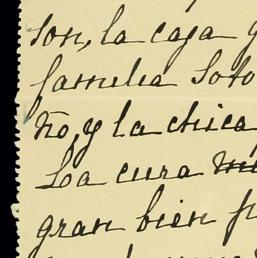 son, la caja g
familia Soto
ño, y la chica
Loa cura
gran bien